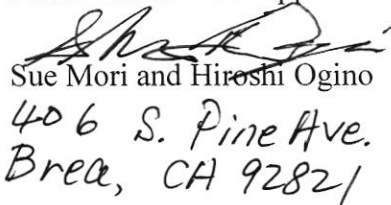 Sue Mori and Hiroshi Ogino
406 S. Pine Ave.
Brea, CA 92821